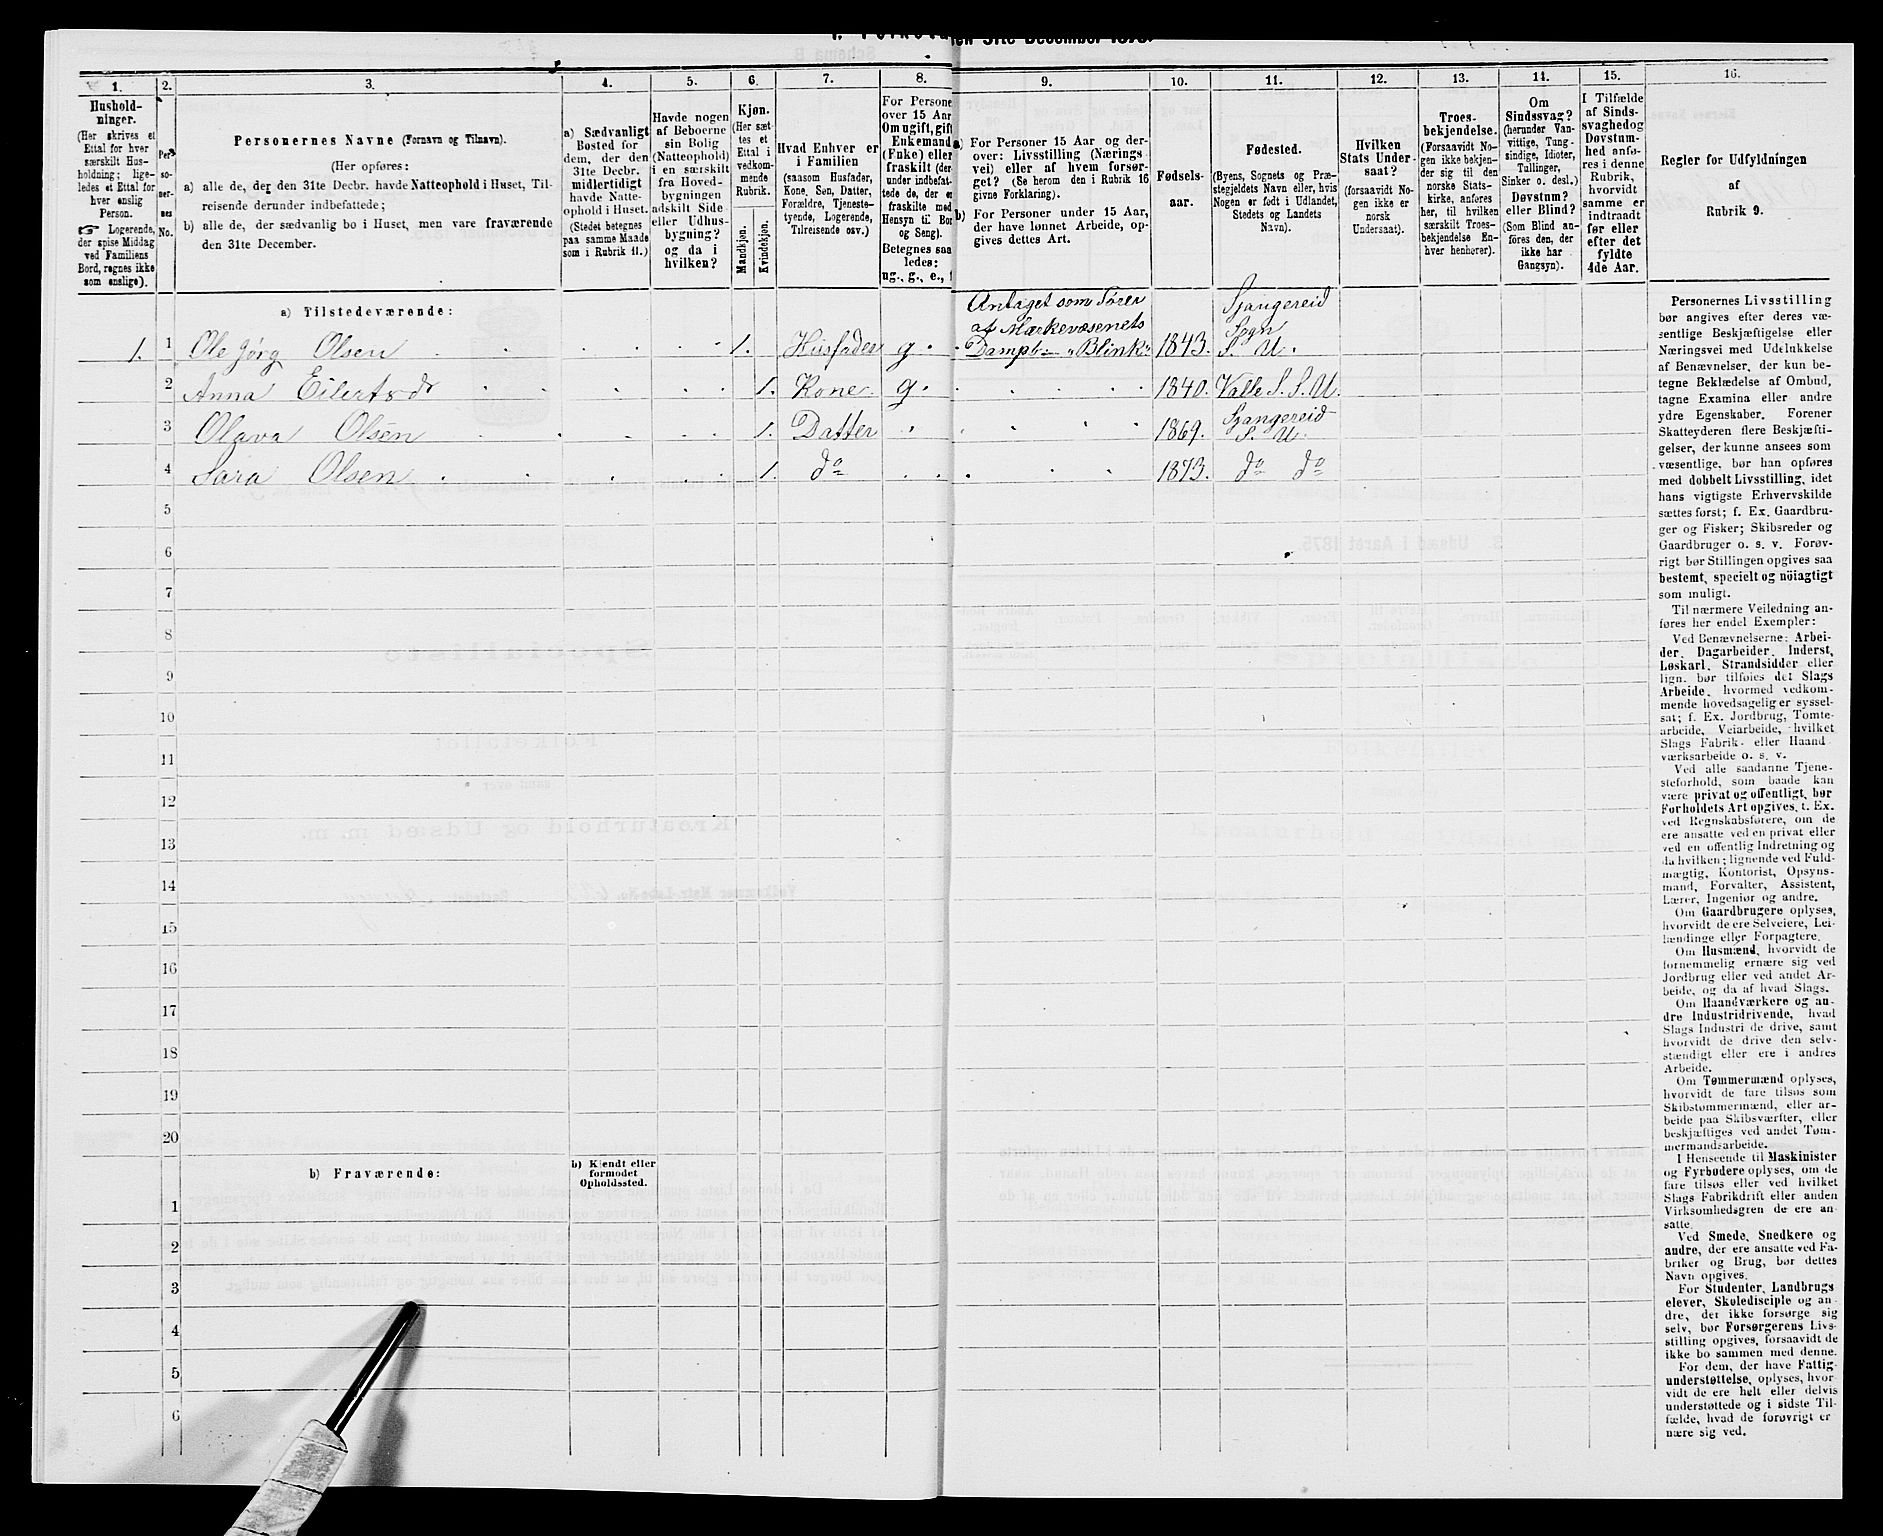 1.
Husholdninger.
(Her skrives et
Ettal for hver
særskilt Husholdning;
ligeledes et Ettal for
hver enslig
Person.
☞ Logerende,
der spise Middag
ved Familiens
Bord, regnes ikke
som enslige).
2.
Personernes
No.
3.
Personernes Navne (Fornavn og Tilnavn).
(Her opføres:
a) alle de, der den 31te Decbr. havde Natteophold i Huset, Tilreisende derunder indbefattede;
b) alle de, der sædvanlig bo i Huset, men vare fraværende
den 31te December.
4.
a) Sædvanligt
Bosted for
dem, der den
31te Decbr.
midlertidigt
havde Natteophold i Huset.
(Stedet betegnes
paa samme Maade
som i Rubrik 11.)
5.
Havde nogen
af Beboerne
sin Bolig
(Natteophold)
i en særskilt
fra Hovedbygningen
adskilt Side
eller Udhusbygning?
og da i
hvilken?
6.
Kjøn.
(Her sættes et
Ettal i
vedkommende
Rubrik.
Mandkjøn.
Kvindekjøn.
7.
Hvad Enhver er
i Familien
(saasom Husfader,
Kone, Søn, Datter,
Forældre, Tjenestetyende, Logerende,
Tilreisende osv.)
8.
For Persone
over 15 Aar
Om ugift, gift
Enkemand
(Enke) eller
fraskilt (derunder indbefattede de, der er
fraskilte med
Hensyn til Bor
og Seng).
Betegnes saaledes:
ug., g., e.,
9.
a) For Personer 15 Aar og derover: Livsstilling (Næringsvei) eller af hvem forsørget? (Se herom den i Rubrik 16
givne Forklaring).
b) For Personer under 15 Aar,
der have lønnet Arbeide, opgives dettes Art.
10.
Fødselsaar.
11.
Fødested.
(Byens, Sognets og Præstegjeldets Navn eller, hvis
Nogen er født i Udlandet,
Stedets og Landets
Navn).
12.
Hvilken
Stats Undersaat?
(forsaavidt Nogen ikke er
norsk
Undersaat).
13.
Troesbekjendelse.
(Forsaavidt Nogen ikke bekjender sig til den
norske Statskirke, anføres
her, til hvilken
særskilt Troesbekjendelse Enhver henhører).
14.
Om
Sindssvag?
(herunder Vanvittige, Tungsindige, Idioter,
Tullinger,
Sinker o. desl.)
Døvstum?
eller Blind?
(Som Blind anføres den, der
ikke har
Gangsyn).
15.
I Tilfælde
af Sindssvaghed og
Døvstumhed anføres i denne
Rubrik,
hvorvidt
samme er
indtraadt
før eller
efter det
fyldte
4de Aar.
16.
Regler for Udfyldningen
af
Rubrik 9.
a) Tilstedeværende:
1. 1 Ole Jørg Olsen 1. Husfader g Antaget som Fører af Mærkevæsenets Dampb. "Blink" 1843. Spangereid Sogn S. U.
2 Anna Eilertsdr 1. Kone g 1840. Valle S. S. U.
3 Olava Olsen 1. Datter 1869. Spangereid S. U.
4 Sara Olsen 1. do 1873. do do
5
6
7
8
9
10
11
12
13
14
15
16
17
18
19
20
b) Fraværende:
b) Kjendt eller
formodet
Opholdssted.
1
2
3
4
5
6
Personernes Livsstilling
bør angives efter deres væsentlige Beskjæftigelse eller
Næringsvei med Udelukkelse
af Benævnelser, der kun betegne Beklædelse af Ombud,
tagne Examina eller andre
ydre Egenskaber. Forener
Skatteyderen flere Beskjæftigelser, der kunne ansees som
væsentlige, bør han opføres
med dobbelt Livsstilling, idet
hans vigtigste Erhvervskilde
sættes først; f. Ex. Gaardbruger og Fisker; Skibsreder og
Gaardbruger o. s. v. Forøvrigt bør Stillingen opgives saa
bestemt, specielt og nöiagtigt
som muligt.
Til nærmere Veiledning anføres her endel Exempler:
Ved Benævnelserne: Arbeider, Dagarbeider, Inderst,
Løskarl, Strandsidder eller
lign. bør tilføies det Slags
Arbeide, hvormed vedkommende hovedsagelig er sysselsat; f. Ex. Jordbrug, Tomtearbeide, Veiarbeide, hvilket
Slags Fabrik- eller Haandværksarbeide o. s. v.
Ved alle saadanne Tjenesteforhold, som baade kan
være privat og offentligt, bør
Forholdets Art opgives, t. Ex.
ved Regnskabsførere, om de
ere ansatte ved en privat eller
ved en offentlig Indretning og
da hvilken; lignende ved Fuldmægtig, Kontorist, Opsynsmand, Forvalter, Assistent,
Lærer, Ingeniør og andre.
Om Gaardbrugere oplyses,
hvorvidt de ere Selveiere, Leilændinge eller Forpagtere.
Om Husmænd, hvorvidt de
fornemmelig ernære sig ved
Jordbrug eller ved andet Arbeide, og da af hvad Slags.
Om Haandværkere og andre Industridrivende, hvad
Slags Industri de drive, samt
hvorvidt de drive den selvstændigt eller ere i andres
Arbeide.
Om Tømmermænd oplyses,
hvorvidt de fare tilsøs som
Skibstømmermænd, eller arbeide paa Skibsværfter, eller
beskjæftiges ved andet Tømmermandsarbeide.
I Henseende til Maskinister
og Fyrbødere oplyses, om de
fare tilsøs eller ved hvilket
Slags Fabrikdrift eller anden
Virksomhedsgren de ere ansatte.
Ved Smede, Snedkere og
andre, der ere ansatte ved Fabriker og Brug, bør dettes
Navn opgives.
For Studenter, Landbrugselever, Skoledisciple og andre, der ikke forsørge sig
selv, bør Forsørgerens Livsstilling opgives, forsaavidt de
ikke bo sammen med denne.
For dem, der have Fattigunderstøttelse, oplyses, hvorvidt de ere helt eller delvis
understøttede og i sidste Tilfælde, hvad de forøvrigt ernære sig ved.